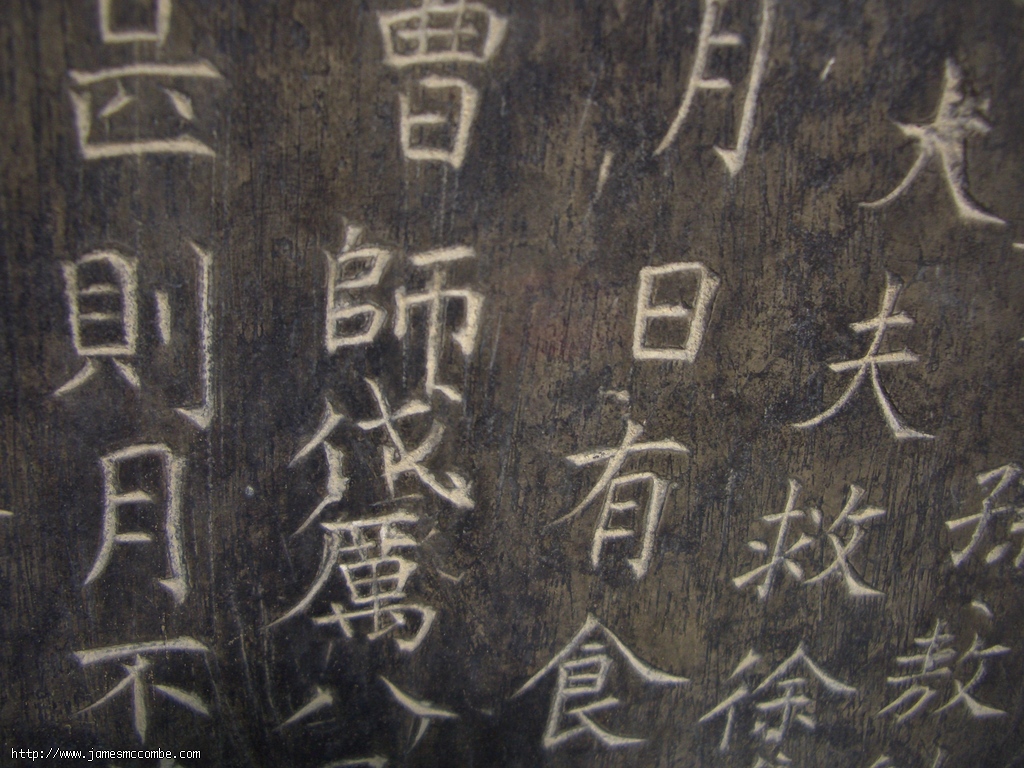 孫敖
大夫救徐
月日有食
曹師伐厲八
甚則月不
http://www.jamesmccombe.com